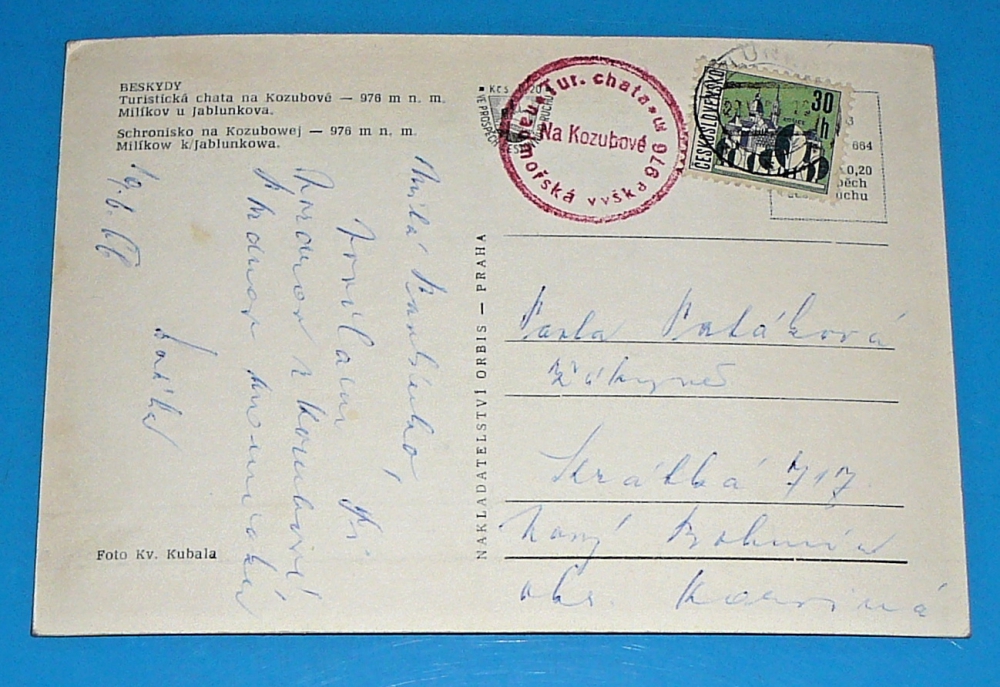 BESKYDY
Turistická chata na Kozubové — 976 m n. m.
Milíkov u Jablunkova.
Schronisko na Kozubowej — 976 m n. m.
Milików k/Jablunkowa.
19. 6. 66
Milá
Posílám Ti
pozdrav z Kozubové
Foto Kv. Kubala
NAKLADATELSTVÍ ORBIS — PRAHA
Kčs 20
VE PROSPĚCH
Tur. chata
Na Kozubové
nadmořská výška 976 m
ČESKOSLOVENSKO
30 h
664
0,20
Pavla
žákyně
Krátká 717
Nový Bohumín
okr. Karviná